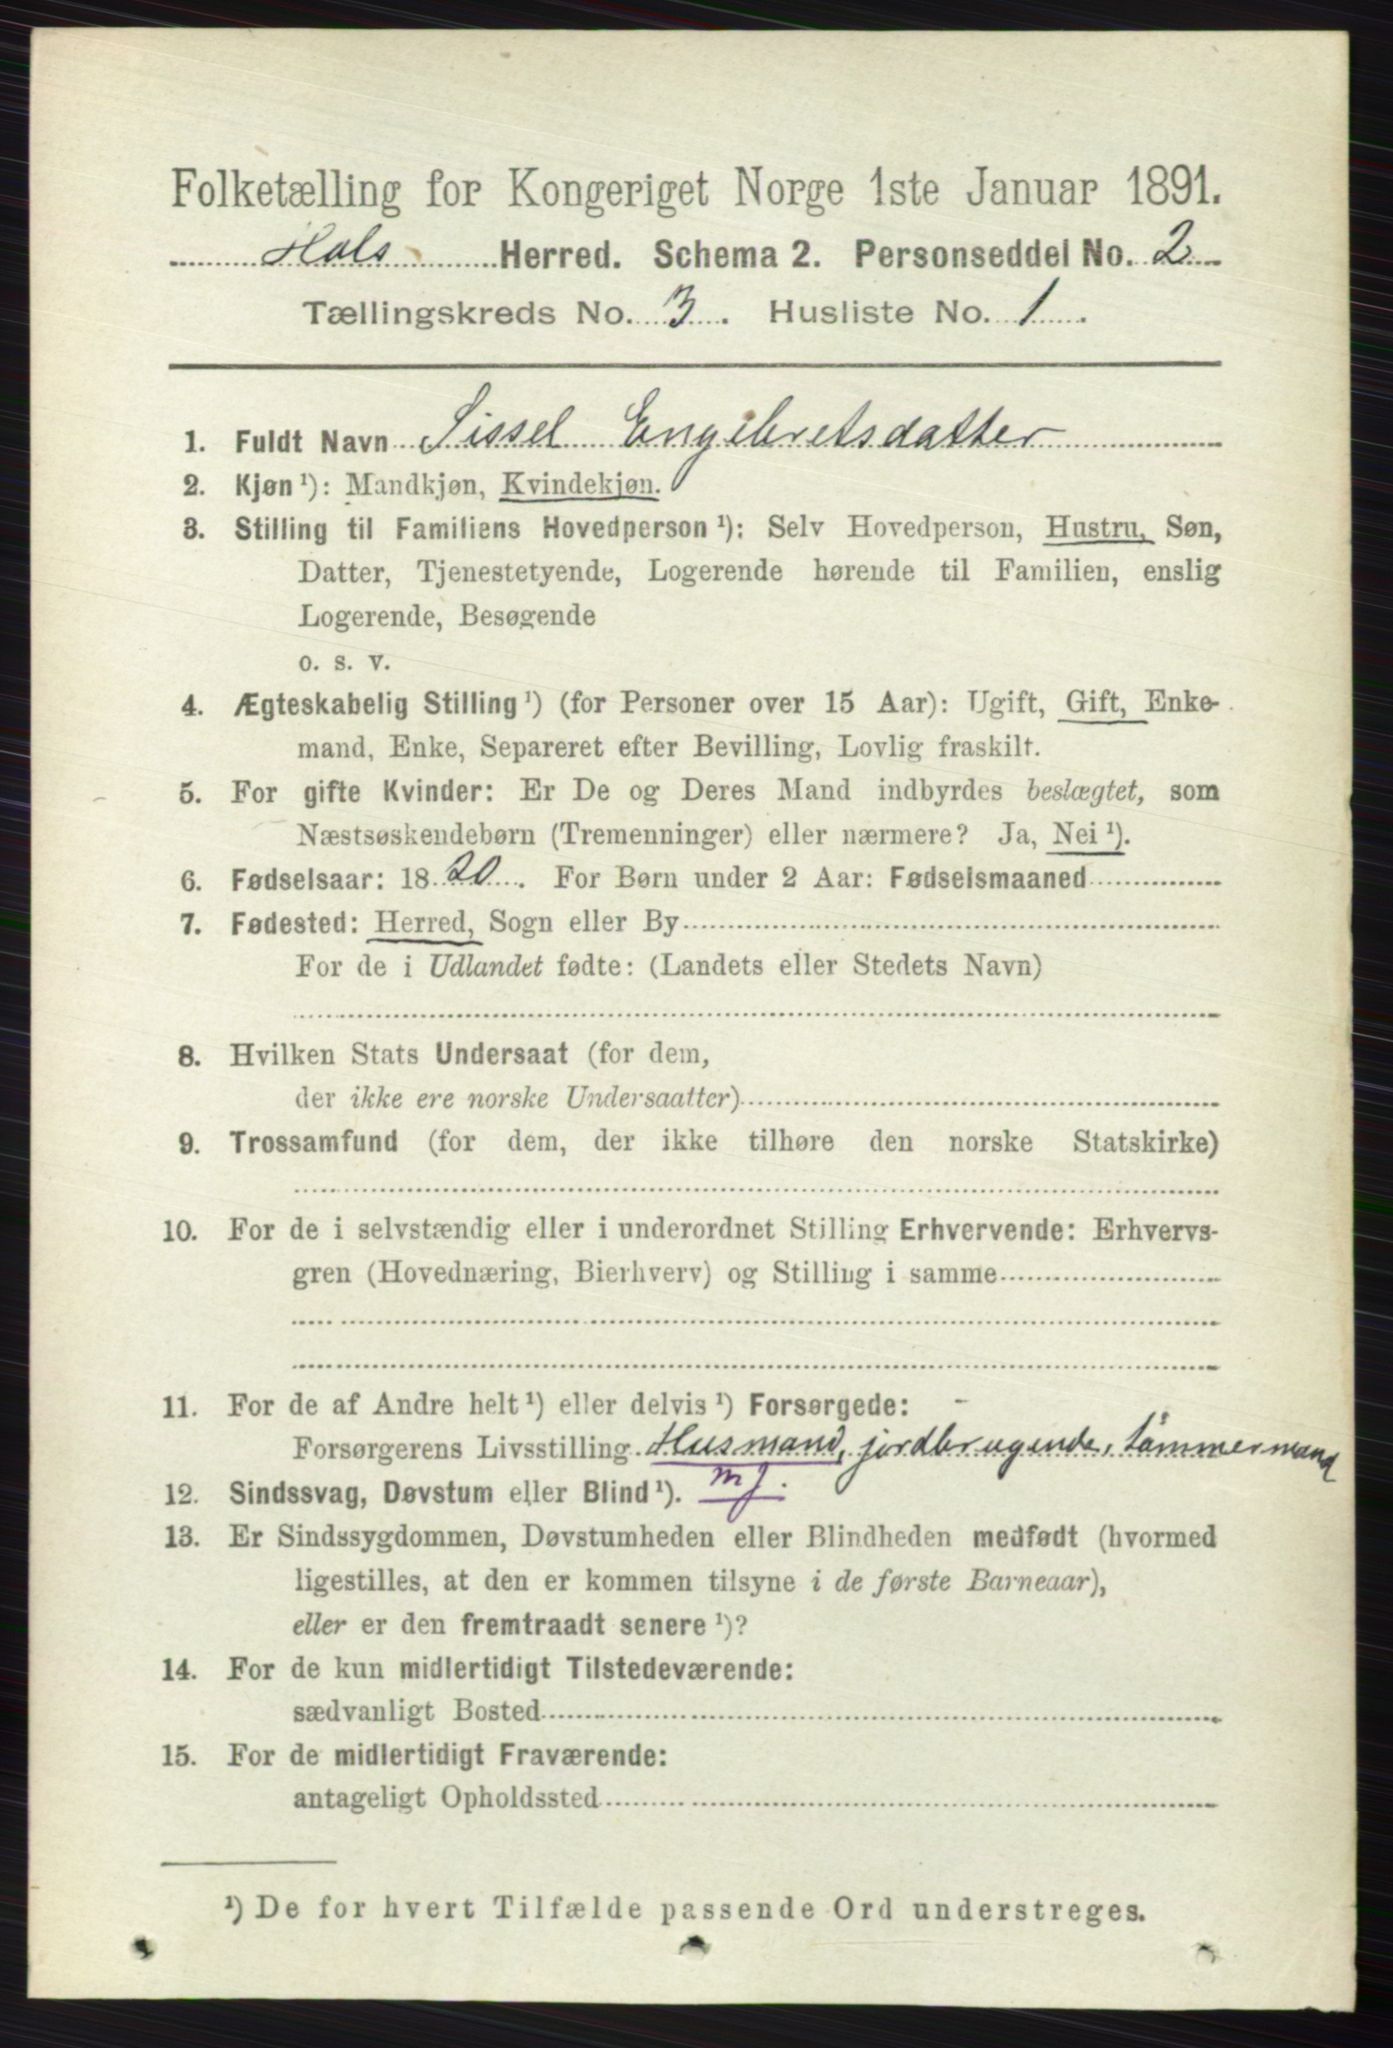 Folketælling for Kongeriget Norge 1ste Januar 1891.
Hols Herred. Schema 2. Personseddel No. 2
Tællingskreds No. 3. Husliste No. 1.
1. Fuldt Navn Sissel Engebretsdatter
2. Kjøn ¹): Mandkjøn, Kvindekjøn.
3. Stilling til Familiens Hovedperson ¹): Selv Hovedperson, Hustru, Søn,
Datter, Tjenestetyende, Logerende hørende til Familien, enslig
Logerende, Besøgende
o. s. v.
4. Ægteskabelig Stilling ¹) (for Personer over 15 Aar): Ugift, Gift, Enke-
mand, Enke, Separeret efter Bevilling, Lovlig fraskilt.
5. For gifte Kvinder: Er De og Deres Mand indbyrdes beslægtet, som
Næstsøskendebørn (Tremenninger) eller nærmere? Ja, Nei ¹).
6. Fødselsaar: 1820. For Børn under 2 Aar: Fødselsmaaned
7. Fødested: Herred, Sogn eller By
For de i Udlandet fødte: (Landets eller Stedets Navn)
8. Hvilken Stats Undersaat (for dem,
der ikke ere norske Undersaatter)
9. Trossamfund (for dem, der ikke tilhøre den norske Statskirke)
10. For de i selvstændig eller i underordnet Stilling Erhvervende: Erhvervs-
gren (Hovednæring, Bierhverv) og Stilling i samme
11. For de af Andre helt ¹) eller delvis ¹) Forsørgede: -
Forsørgerens Livsstilling Husmand, jordbrugende, tømmermand
12. Sindssvag, Døvstum eller Blind ¹). mj.
13. Er Sindssygdommen, Døvstumheden eller Blindheden medfødt (hvormed
ligestilles, at den er kommen tilsyne i de første Barneaar),
eller er den fremtraadt senere ¹)?
14. For de kun midlertidigt Tilstedeværende:
sædvanligt Bosted
15. For de midlertidigt Fraværende:
antageligt Opholdssted
¹) De for hvert Tilfælde passende Ord understreges.